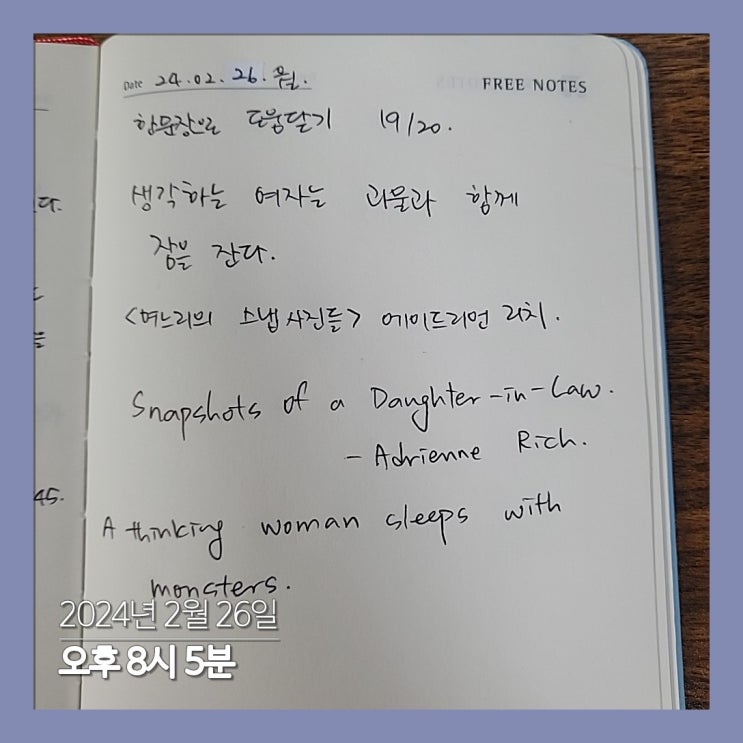 Date 24.02.26.월.
FREE NOTES
한문장으로 도움닫기 19/20.
생각하는 여자는 괴물과 함께
잠을 잔다.
<며느리의 스냅사진들> 에이드리언 리치.
Snapshots of a Daughter-in-Law.
- Adrienne Rich.
A thinking woman sleeps with
monsters.
다.
45.
2024년 2월 26일
오후 8시 5분